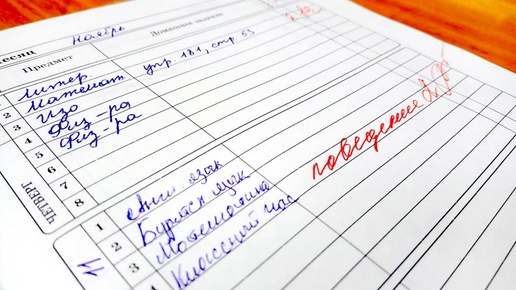 месяц Ноябрь
Предмет Домашнее задание
1 литер
2 Математ упр 181, стр 53
3 Изо
4 Физ-ра
5 Физ-ра
6
7
8
ЧЕТВЕРГ
1 Англ язык
2 Бурятск язык
3 Математика
Классный час
поведение
11